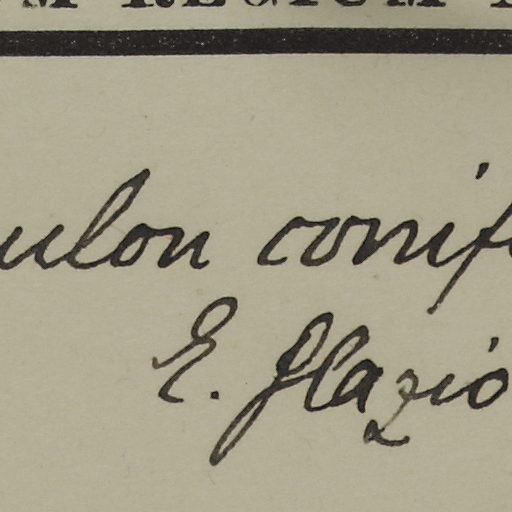 M REGIUM
ulon conif
E. Glazio